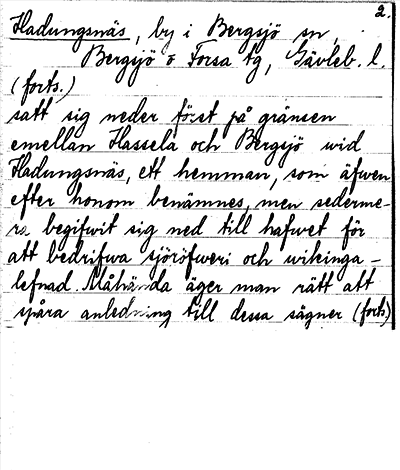 2.
Hadungsnäs, by i Bergsjö sn,
Bergsjö o Forsa tg, Gävleb. l.
(forts.)
satt sig neder först på gränsen
emellan Hassela och Bergsjö wid
Hadungsnäs, ett hemman, som äfwen
efter honom benämnes, men sederme-
ra begifwit sig ned till hafwet för
att bedrifwa sjöröfweri och wikinga-
lefnad. Måhända äger man rätt att
spåra anledning till dessa sägner (forts.)